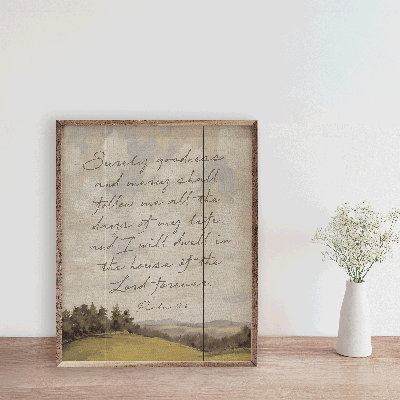 Surely goodness
and mercy shall
follow me all the
days of my life
and I will dwell in
the house of the
Lord forever.
Psalm 23:6